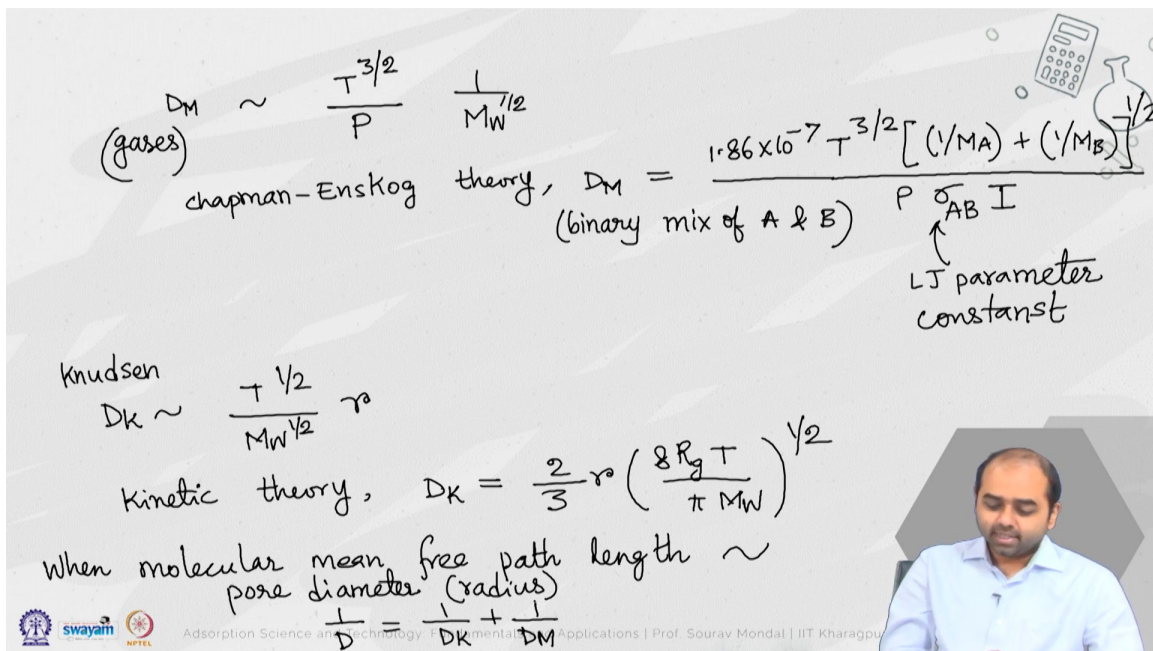 D_M ~ T^{3/2} / P  1 / M_W^{1/2}
(gases)
chapman-Enskog theory, D_M = 1.86×10^{-7} T^{3/2} [(1/M_A) + (1/M_B)]^{1/2} / P σ_{AB} I
(binary mix of A & B)
LJ parameter
constanst
Knudsen
D_K ~ T^{1/2} / M_W^{1/2} r
Kinetic theory, D_K = 2/3 r (8 R_g T / π M_W)^{1/2}
When molecular mean free path length ~
pore diameter (radius)
1/D = 1/D_K + 1/D_M
swayam NPTEL Adsorption Science and Technology: Fundamentals and Applications | Prof. Sourav Mondal | IIT Kharagpur